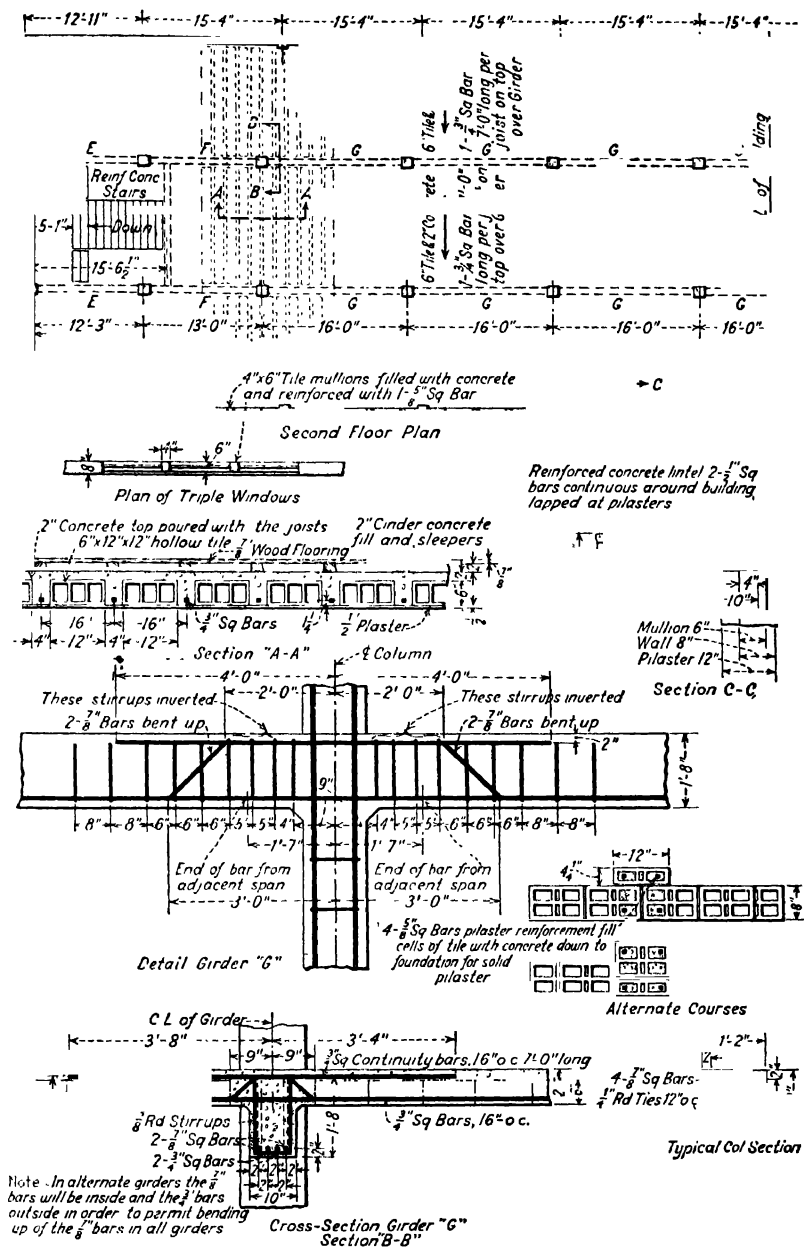 12'-11" 15'-4" 15'-4" 15'-4" 15'-4" 15'-4"
6" Tile &
1-3/4" Sq Bar
7'-0" long per
joist on top
over Girder
E F G G G
Reinf Conc
Stairs
Down
5'-1"
15'-6 1/2"
A B
6" Tile & 2"
1-3/4" Sq Bar
long per
top over
E F G G G G
12'-3" 13'-0" 16'-0" 16'-0" 16'-0"
4"x6" Tile mullions filled with concrete
and reinforced with 1-5/8" Sq Bar
C
Second Floor Plan
4" 6"
8"
Plan of Triple Windows
Reinforced concrete lintel 2-1/2" Sq
bars continuous around building,
lapped at pilasters
2" Concrete top poured with the joists
6"x12"x12" hollow tile
7/8" Wood Flooring
2" Cinder concrete
fill and sleepers
16" 16"
3/4" Sq Bars 1/2" Plaster
4" 12" 4" 12"
Section "A-A"
4"
10"
Mullion 6"
Wall 8"
Pilaster 12"
Section C-C
℄ Column
4'-0" 4'-0"
2'-0" 2'-0"
These stirrups inverted These stirrups inverted
2-7/8" Bars bent up 2-7/8" Bars bent up
2"
1'-8"
9"
8" 8" 6" 6" 6" 5" 5" 4" 4" 5" 5" 6" 6" 6" 8" 8"
1'-7" 1'7"
End of bar from
adjacent span
End of bar from
adjacent span
3'-0" 3'-0"
Detail Girder "G"
12"
4 1/4"
8"
4-5/8" Sq Bars pilaster reinforcement fill
cells of tile with concrete down to
foundation for solid
pilaster
Alternate Courses
C L of Girder
3'-8" 3'-4"
9" 9"
3/4" Sq Continuity bars, 16" o c 7'-0" long
Rd Stirrups
3/4" Sq Bars, 16" o c.
1'-8
2-7/8" Sq Bars
2-3/4" Sq Bars
2" 2" 2"
10"
1'-2"
4-7/8" Sq Bars
1/4" Rd Ties 12" o c
Typical Col Section
Note - In alternate girders the 7/8"
bars will be inside and the 3/4" bars
outside in order to permit bending
up of the 7/8" bars in all girders
Cross-Section Girder "G"
Section "B-B"